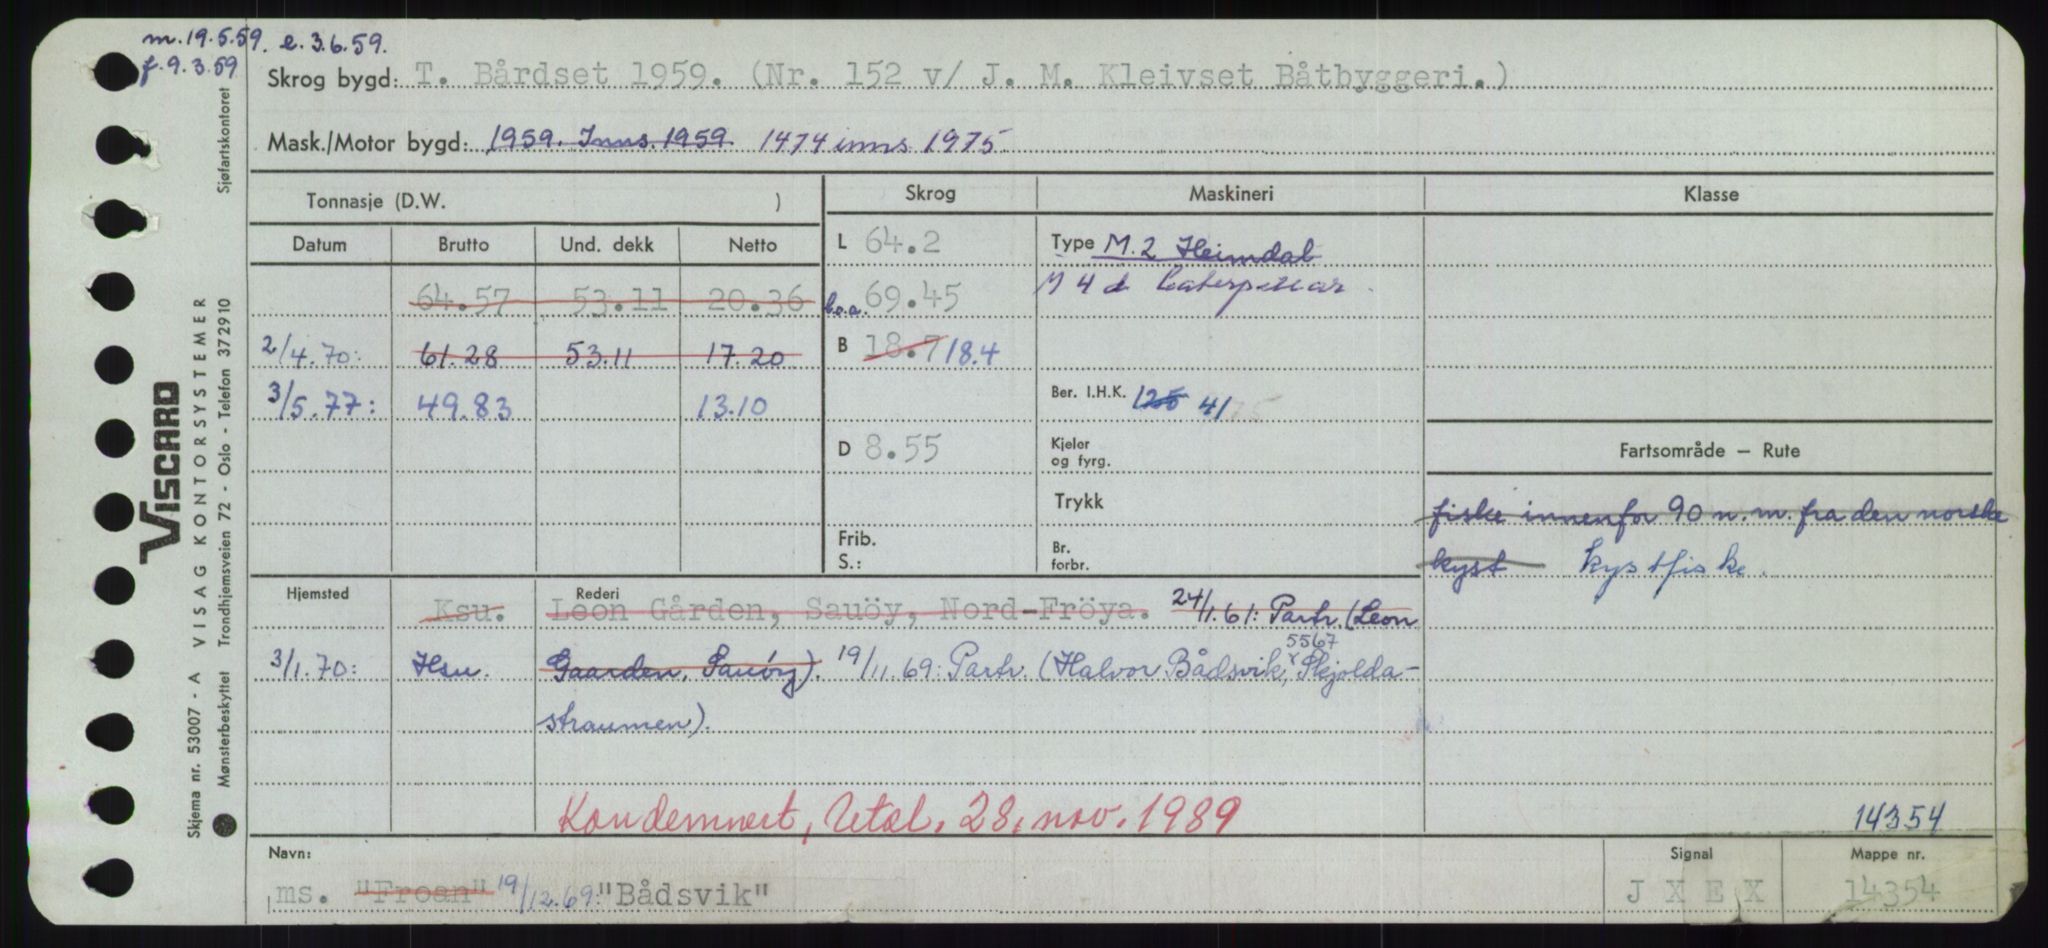 m. 19.5.59. e. 3.6.59.
f. 9.3.59
Skrog bygd: T. Bårdset 1959. (Nr. 152 v/ J. M. Kleivset Båtbyggeri.)
Mask./Motor bygd: 1959. Inns. 1959 1474 inns 1975
Sjøfartskontoret
Tonnasje (D.W. )
Skrog Maskineri Klasse
Datum Brutto Und. dekk Netto
L 64.2
Type M.2 Heimdal
64.57 53.11 20.36
l.o.a. 69.45
M 4 d Caterpillar.
2/4.70: 61.28 53.11 17.20
B 18.7 18.4
3/5.77: 49.83 13.10
Ber. I.H.K. 125 41
D 8.55
Kjeler
og fyrg.
Fartsområde – Rute
Trykk
fiske innenfor 90 n.m. fra den norske
kyst kystfiske.
Frib.
S.:
Br.
forbr.
Hjemsted Rederi
Ksu. Leon Gården, Sauöy, Nord-Fröya. 24/1.61: Partr. (Leon
3/1.70: Hsu. Gaarden, Sauöy). 19/11.69: Partr. (Halvor Bådsvik, 5567 Skjolda-
straumen).
Kondemnert, Utal. 28. nov. 1989
14354
Navn: Signal Mappe nr.
ms. "Froan" 19/12.69: "Bådsvik" J X E X 14354
VISCARD
Skjema nr. 53007 - A VISAG KONTORSYSTEMER
Mønsterbeskyttet Trondhjemsveien 72 - Oslo - Telefon 372910